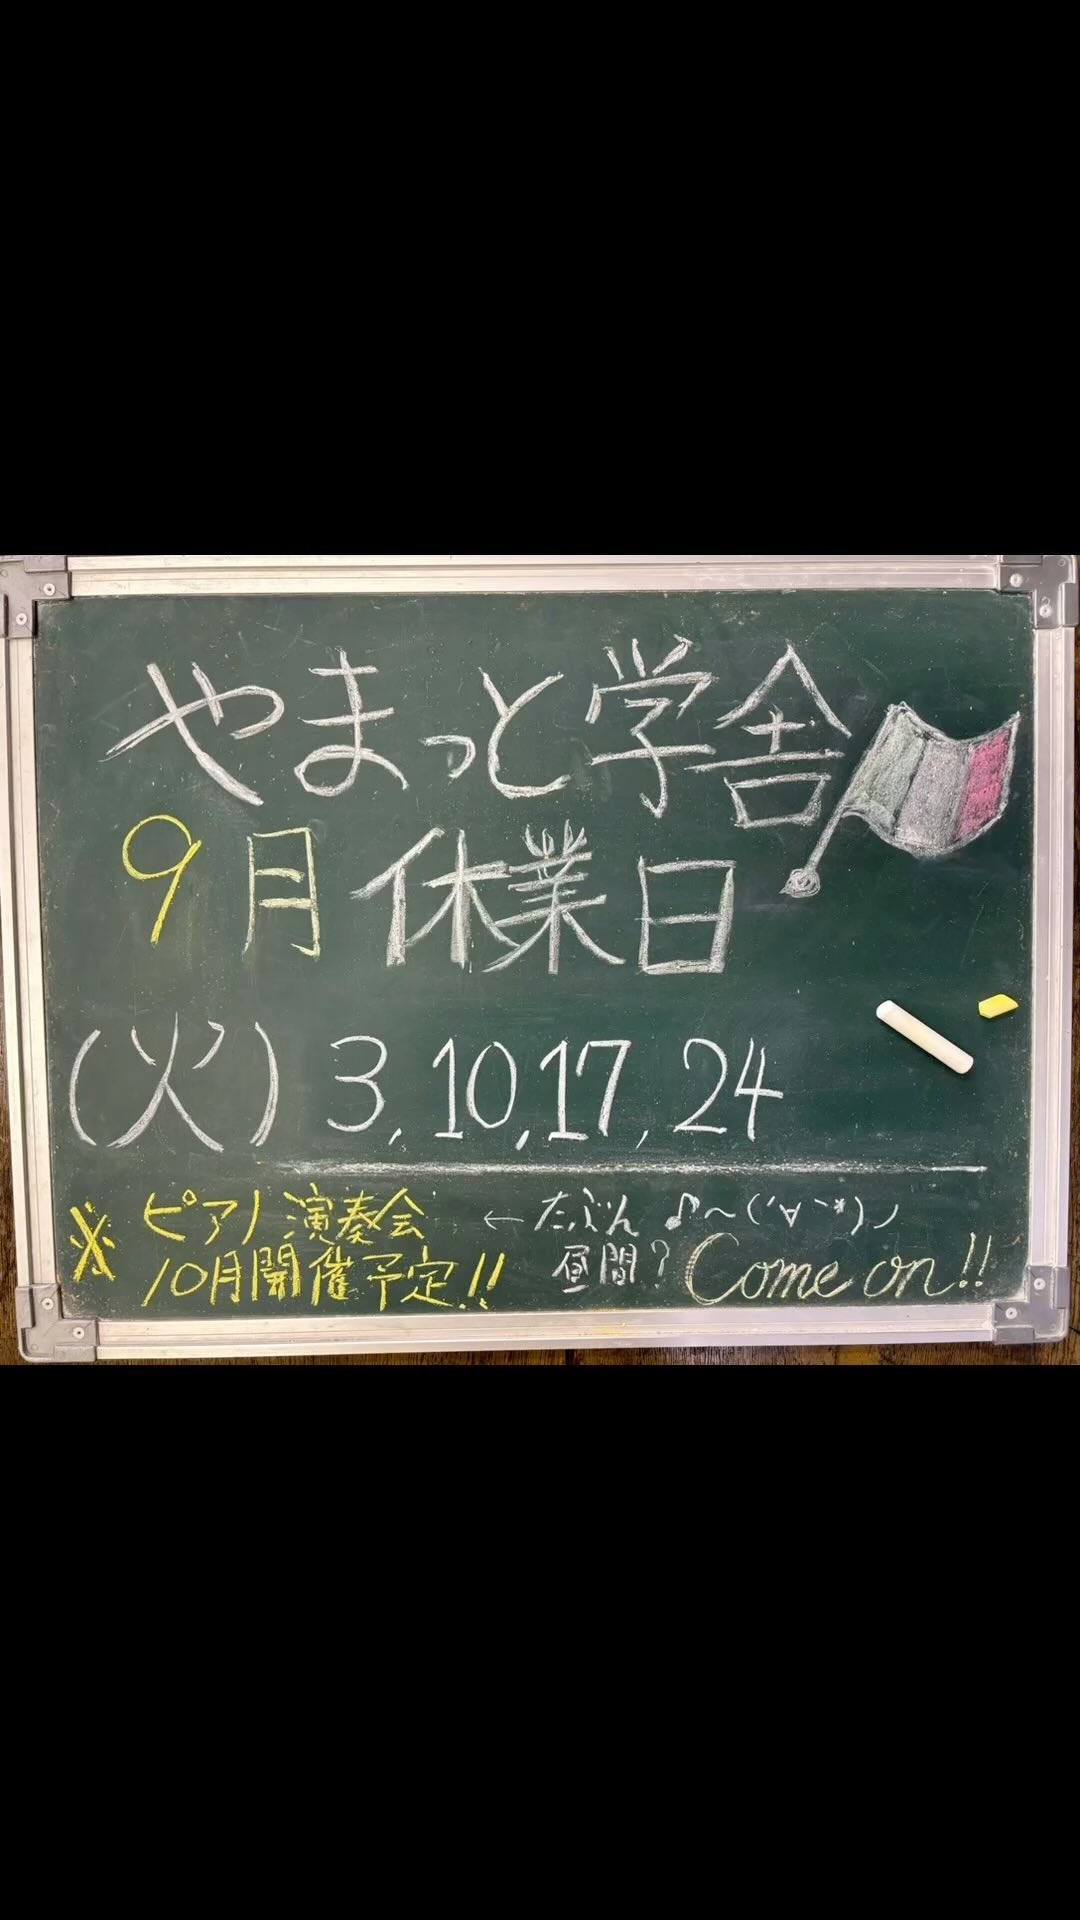 やまっと学舎
9月休業日
(火) 3, 10, 17, 24
※ ピアノ演奏会 ← たぶん ♪〜(´∀｀*)ノ
10月開催予定!! 昼間? Come on!!